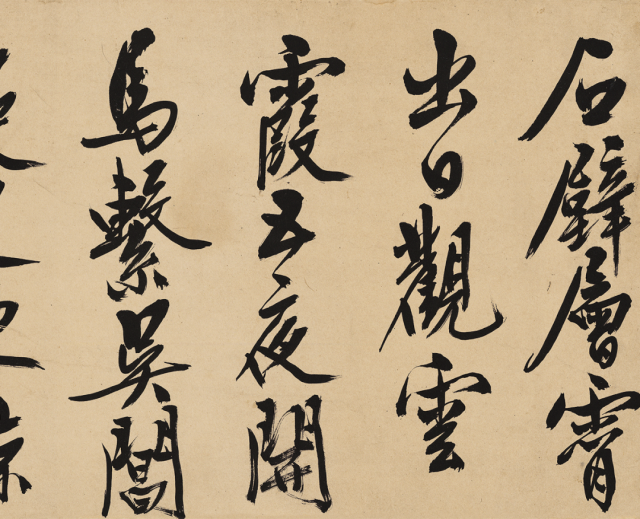 石壁層霄
出日觀雲
霞五夜開
馬繫吳閶